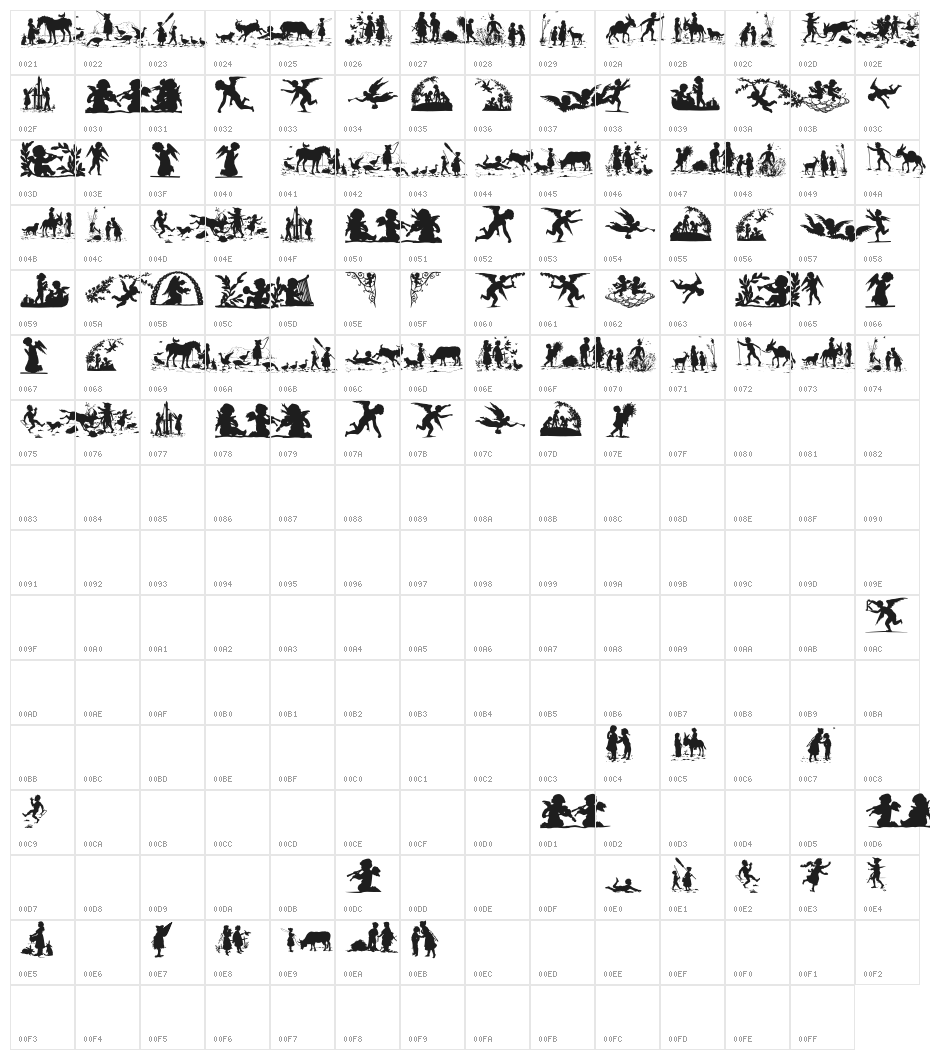 0021 0022 0023 0024 0025 0026 0027 0028 0029 002A 002B 002C 002D 002E
002F 0030 0031 0032 0033 0034 0035 0036 0037 0038 0039 003A 003B 003C
003D 003E 003F 0040 0041 0042 0043 0044 0045 0046 0047 0048 0049 004A
004B 004C 004D 004E 004F 0050 0051 0052 0053 0054 0055 0056 0057 0058
0059 005A 005B 005C 005D 005E 005F 0060 0061 0062 0063 0064 0065 0066
0067 0068 0069 006A 006B 006C 006D 006E 006F 0070 0071 0072 0073 0074
0075 0076 0077 0078 0079 007A 007B 007C 007D 007E 007F 0080 0081 0082
0083 0084 0085 0086 0087 0088 0089 008A 008B 008C 008D 008E 008F 0090
0091 0092 0093 0094 0095 0096 0097 0098 0099 009A 009B 009C 009D 009E
009F 00A0 00A1 00A2 00A3 00A4 00A5 00A6 00A7 00A8 00A9 00AA 00AB 00AC
00AD 00AE 00AF 00B0 00B1 00B2 00B3 00B4 00B5 00B6 00B7 00B8 00B9 00BA
00BB 00BC 00BD 00BE 00BF 00C0 00C1 00C2 00C3 00C4 00C5 00C6 00C7 00C8
00C9 00CA 00CB 00CC 00CD 00CE 00CF 00D0 00D1 00D2 00D3 00D4 00D5 00D6
00D7 00D8 00D9 00DA 00DB 00DC 00DD 00DE 00DF 00E0 00E1 00E2 00E3 00E4
00E5 00E6 00E7 00E8 00E9 00EA 00EB 00EC 00ED 00EE 00EF 00F0 00F1 00F2
00F3 00F4 00F5 00F6 00F7 00F8 00F9 00FA 00FB 00FC 00FD 00FE 00FF